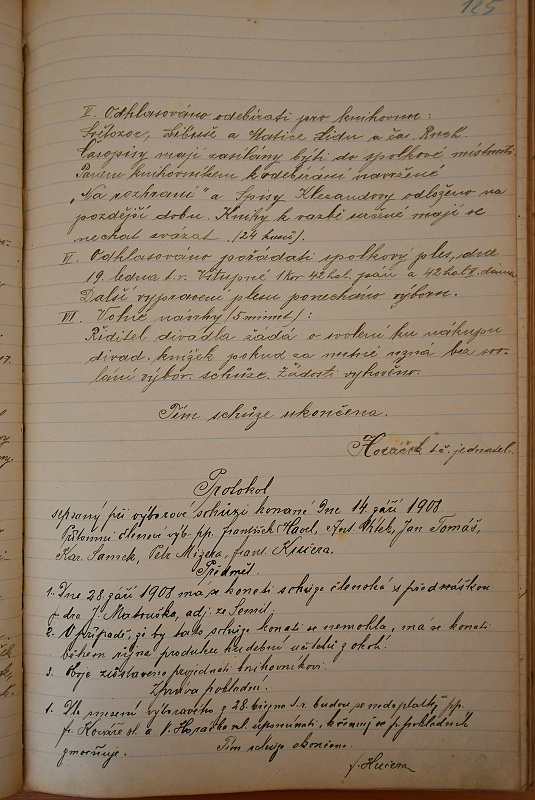 125
V. Odhlasováno odebírati pro knihovnu:
Světozor, Libuši a Matice Lidu a čas. Ruch.
Časopisy mají zasílány býti do spolkové místnosti.
Panem knihovníkem k odebírání navržené
„Na rozhraní" a Spisy Klecandovy odloženo na
pozdější dobu. Knihy k vazbě určené mají se
nechat svázat. (24 kusů).
VI. Odhlasováno pořádati spolkový ples, dne
19. ledna t.r. Vstupné 1 kor 42 hal. pán a 42 hal. dáma
Další vypravení plesu ponecháno výboru.
VII. Volné návrhy (5 minut):
Ředitel divadla žádá o svolení ku nákupu
divad. knížek pokud za nutné uzná bez svo-
lání výbor. schůze. Žádosti vyhověno.
Tím schůze ukončena.
Horáček t.č. jednatel.
Protokol
sepsaný při výborové schůzi konané Dne 14. září 1908
Přítomni členové výb. pp. František Havel, Ant. Vítek, Jan Tomáš,
Kar. Samek, Petr Mizera, Frant. Kučera.
Předmět.
1. Dne 28. září 1908 má se konati schůze členská s přednáškou
p. dra J. Matouška, adj. ze Semil.
2. V případě, že by tato schůze konati se nemohla, má se konati
během října produkce hudební učitelů z okolí.
3. Obje zůstaveno projednati knihovníkovi.
Zpráva pokladní.
1. Dle usnesení výborového z 28. března t.r. budou se nedoplatky pp.
fr. Kováře st. a V. Horáčka ml. upomínati, k čemuž se p. pokladník
zmocňuje.
Tím schůze skončena.